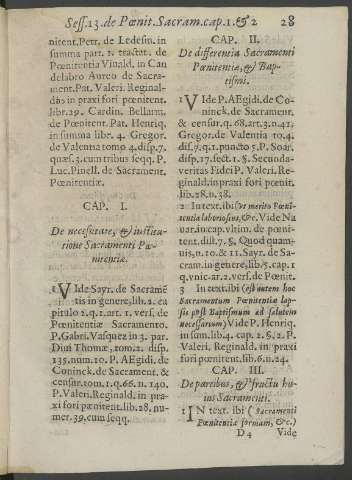 Sess.13. de Pœnit. Sacram. cap. 1. & 2 28
nitent. Petr. de Ledesm. in
summa part. 2. tractat. de
Pœnitentia Vinald. in Can
delabro Aureo de Sacra-
ment. Pat. Valeri. Reginal-
dus in praxi fori pœnitent.
libr. 29. Cardin. Bellarm.
de Pœnitent. Pat. Henriq.
in summa libr. 4. Gregor.
de Valentia tomo 4. disp. 7.
quæs. 3. cum tribus seqq. P.
Luc. Pinell. de Sacrament.
Pœnitentiæ.
CAP. I.
De necessitate, & institu-
tione Sacramenti Pæ-
nitentiæ.
1 VIde Sayr. de Sacramē
tis in genere, lib. 2. ca
pitulo 2. q. 1. art. 1. vers. de
Pœnitentiæ Sacramento.
P. Gabri. Vasquez in 3. par.
Diui Thomæ, tom. 2. disp.
135. num. 10. P. AEgidi. de
Coninck. de Sacrament. &
censur. tom. 1. q. 66. n. 140.
P. Valeri. Reginald. in pra-
xi fori pœnitent. lib. 28. nu-
mer. 39. cum seqq.
CAP. II.
De differentia Sacramenti
Pœnitentiæ, & Bap-
tismi.
1 VIde P. AEgidi. de Co-
ninck. de Sacrament.
& censur. q. 68. art. 3. n. 41.
Gregor. de Valentia to. 4.
dis. 7. q. 1. puncto 5. P. Soar.
disp. 17. sect. 1. §. Secunda-
veritas Fidei P. Valeri. Re-
ginald. in praxi fori pœnit.
lib. 28. n. 38.
2 In text. ibi (vt merito Pœni-
tentia laboriosus, &c. Vide Na
uar. in cap. vltim. de pœni-
tent. dist. 7. §. Quod quam-
uis, n. 10. & 11. Sayr. de Sa-
cram. in genere, lib. 5. cap. 1
q. vnic. ar. 2. vers. de Pœnit.
3 In text. ibi (est autem hoc
Sacramentum Pœnitentiæ lap-
sis post Baptismum ad salutem
necessarium) Vide P. Henriq.
in sum. lib. 4. cap. 2. §. 2. P.
Valeri. Reginald. in praxi
fori pœnitent. lib. 6. n. 24.
CAP. III.
De partibus, & fructu hu-
ius Sacramenti.
1 IN text. ibi (Sacramenti
Pœnitentiæ formam, &c.)
D 4 Vide